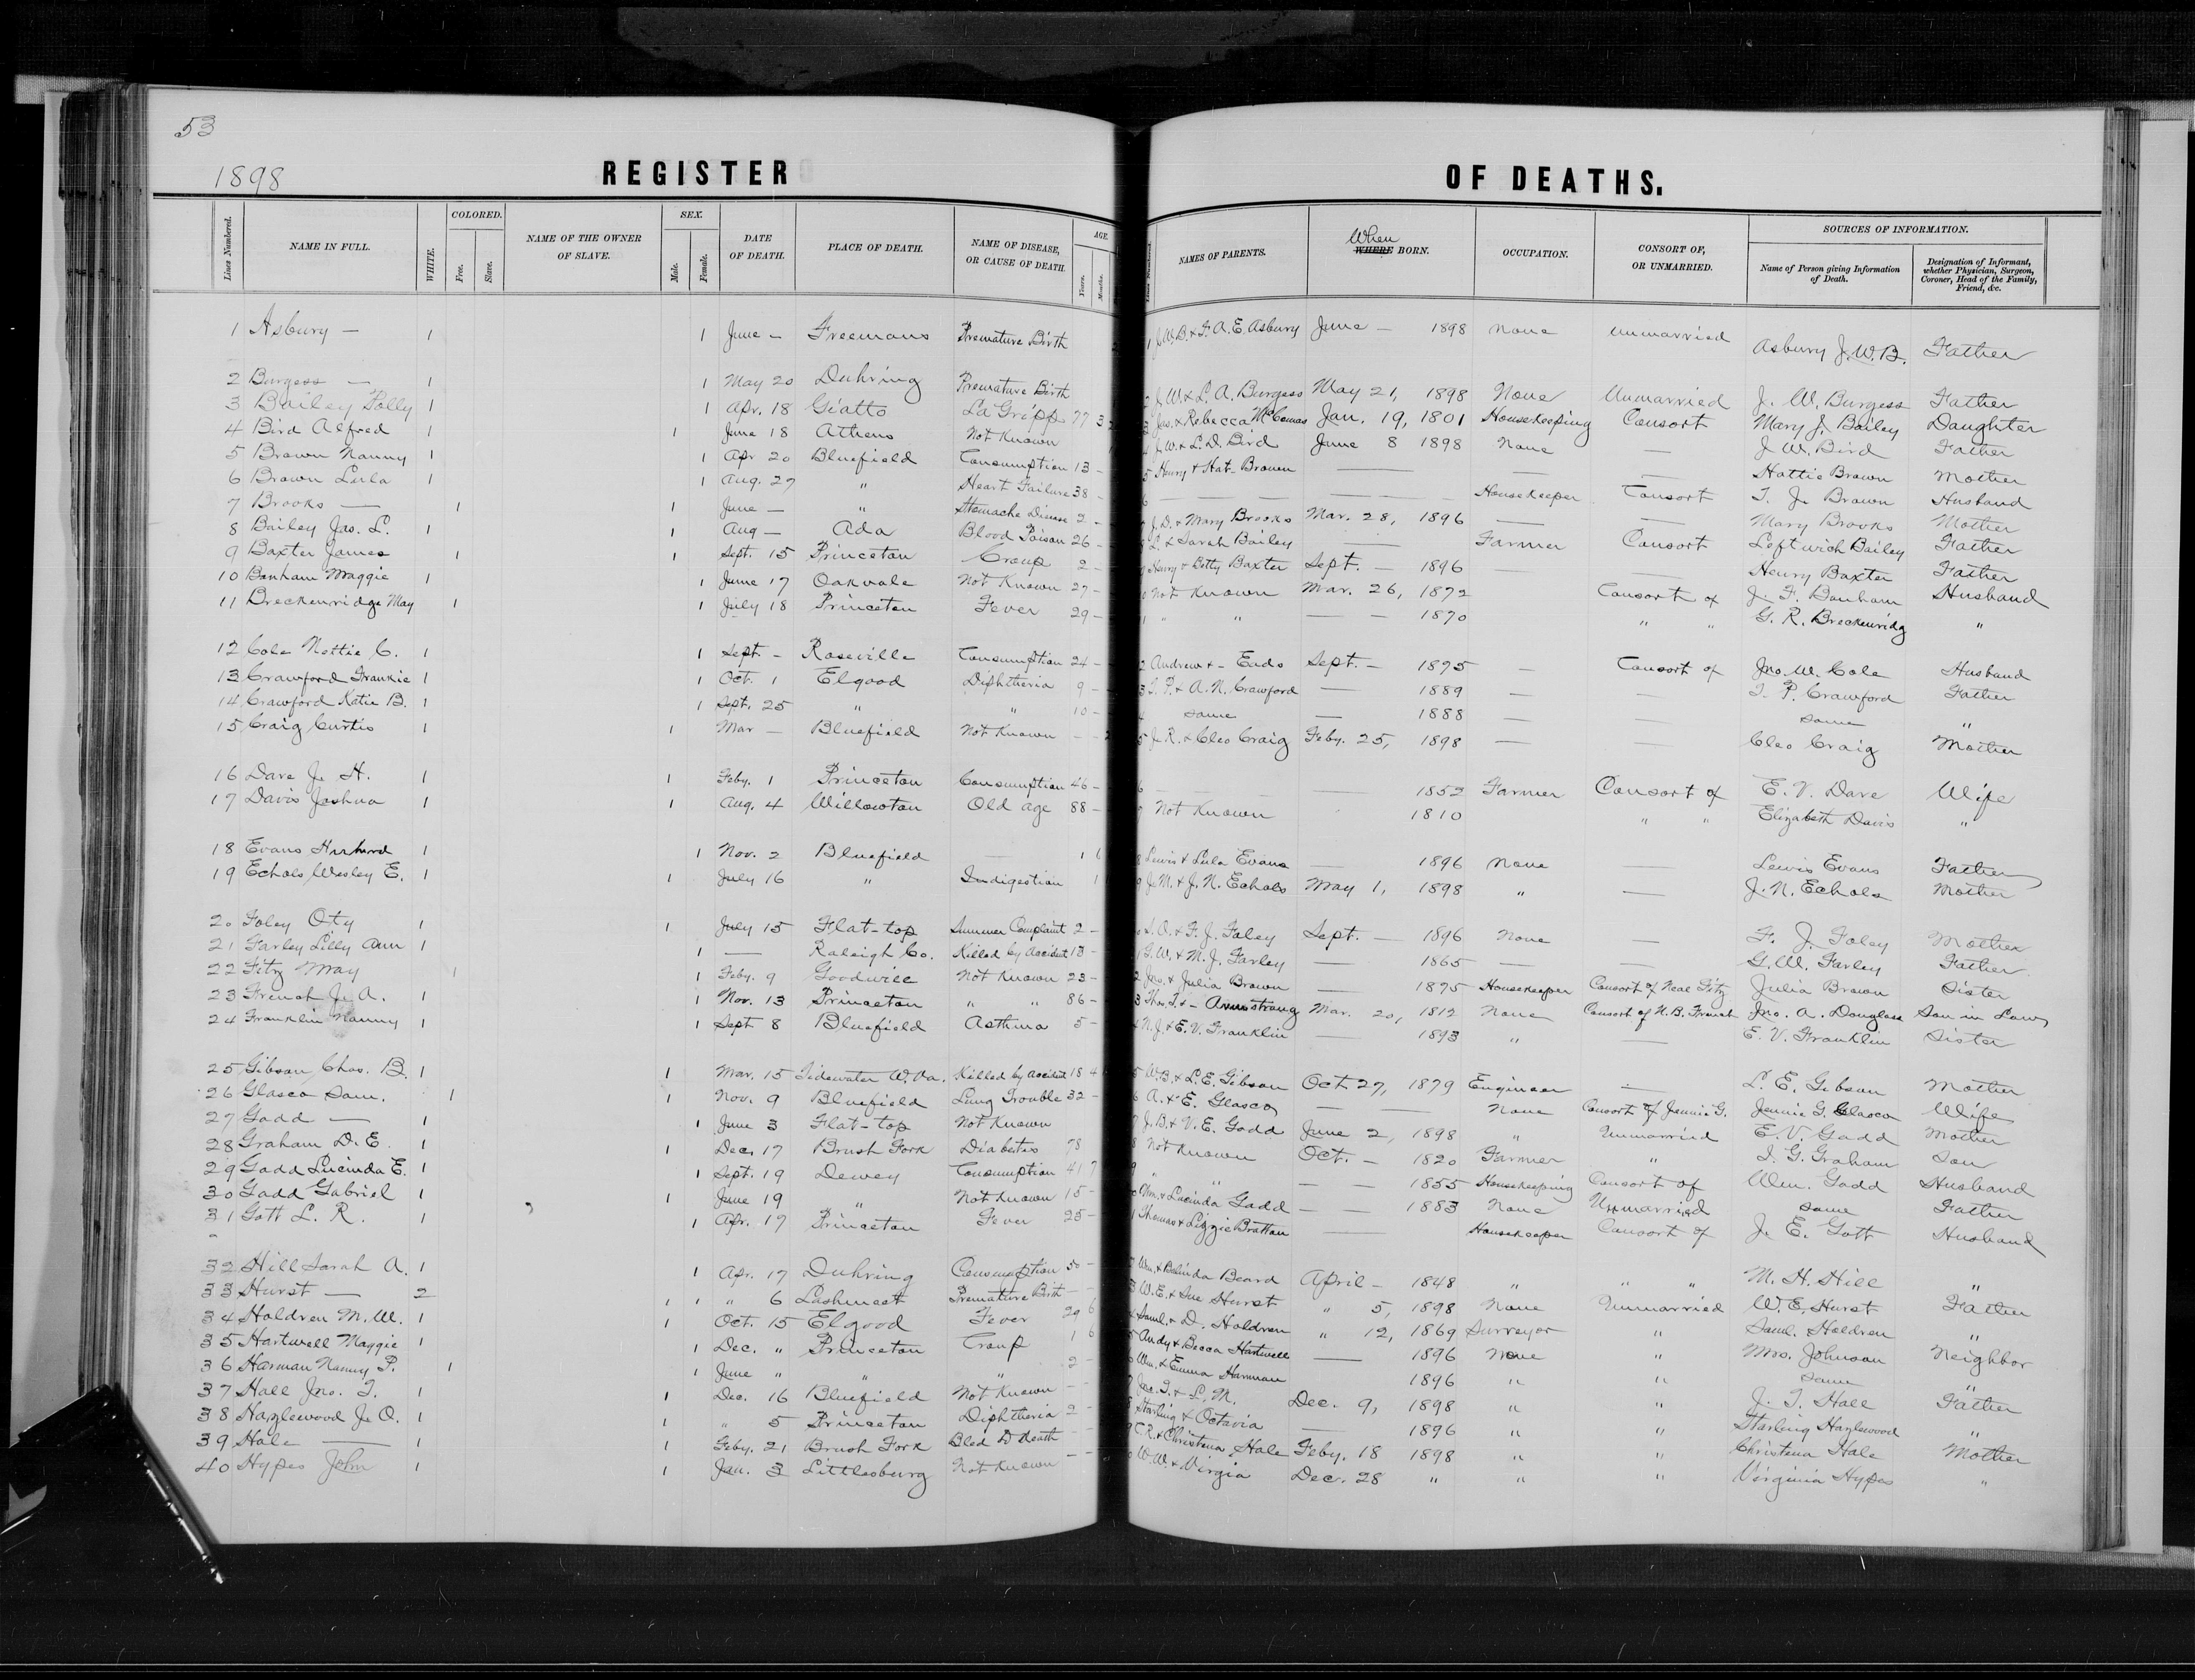 53
1898
REGISTER OF DEATHS.
Lines Numbered. NAME IN FULL. WHITE. COLORED. Free. Slave. NAME OF THE OWNER OF SLAVE. SEX. Male. Female. DATE OF DEATH. PLACE OF DEATH. NAME OF DISEASE, OR CAUSE OF DEATH. AGE. Years. Months. NAMES OF PARENTS. When WHERE BORN. OCCUPATION. CONSORT OF, OR UNMARRIED. SOURCES OF INFORMATION. Name of Person giving Information of Death. Designation of Informant, whether Physician, Surgeon, Coroner, Head of the Family, Friend, &c.
1 Asbury — 1 1 June — Freemans Premature Birth J. W. B. & F. A. E. Asbury June — 1898 None Unmarried Asbury J. W. B. Father
2 Burgess — 1 1 May 20 Duhring Premature Birth J. W. & L. A. Burgess May 21, 1898 None Unmarried J. W. Burgess Father
3 Bailey Polly 1 1 Apr. 18 Giatto La Gripp 77 3 Jas. & Rebecca McComas Jan. 19, 1801 Housekeeping Consort Mary J. Bailey Daughter
4 Bird Alfred 1 1 June 18 Athens Not Known J. W. & L. D. Bird June 8 1898 None — J. W. Bird Father
5 Brown Nanny 1 1 Apr 20 Bluefield Consumption 13 — 5 Henry & Hat- Brown — — — Hattie Brown Mother
6 Brown Lula 1 1 Aug. 27 " Heart Failure 38 — 6 — — — Housekeeper Consort T. J. Brown Husband
7 Brooks — 1 1 June — " Stomache Disease 2 — J. D. & Mary Brooks Mar. 28, 1896 — — Mary Brooks Mother
8 Bailey Jas. L. 1 1 Aug — Ada Blood Poison 26 — L. & Sarah Bailey — Farmer Consort Leftwich Bailey Father
9 Baxter James 1 1 Sept. 15 Princeton Croup 2 — Henry & Betty Baxter Sept. — 1896 — — Henry Baxter Father
10 Bonham Maggie 1 1 June 17 Oakvale Not Known 27 — Not Known Mar. 26, 1872 Consort of J. F. Bonham Husband
11 Breckenridge May 1 1 July 18 Princeton Fever 29 — " " — — 1870 " " G. R. Breckenridg "
12 Cole Nettie C. 1 1 Sept. — Roseville Consumption 24 — 2 Andrew & — Ends Sept. — 1875 — Consort of Jno. W. Cole Husband
13 Crawford Frankie 1 1 Oct. 1 Elgood Diphtheria 9 — 3 T. P. & A. N. Crawford — 1889 — — T. P. Crawford Father
14 Crawford Katie B. 1 1 Sept. 25 " " 10 — 4 same — 1888 — — same "
15 Craig Curtis 1 1 Mar — Bluefield Not Known — — 5 J. R. & Cleo Craig Feby. 25, 1898 — — Cleo Craig Mother
16 Dave J. H. 1 1 Feby. 1 Princeton Consumption 46 — 6 — — 1852 Farmer Consort of E. V. Dave Wife
17 Davis Joshua 1 1 Aug. 4 Willowton Old age 88 — Not Known 1810 " " Elizabeth Davis "
18 Evans 1 1 Nov. 2 Bluefield — 1 6 8 Lewis & Lula Evans — 1896 None — Lewis Evans Father
19 Echols Wesley E. 1 1 July 16 " Indigestion 1 9 J. M. & J. N. Echols May 1, 1898 " — J. N. Echols Mother
20 Foley Oty 1 1 July 15 Flat-top Summer Complaint 2 — S. O. & F. J. Foley Sept. — 1896 None — F. J. Foley Mother
21 Farley Lilly Ann 1 1 — Raleigh Co. Killed by Accident 13 — 1 G. W. & M. J. Farley — 1865 — — G. W. Farley Father
22 Fitz May 1 1 Feby. 9 Goodwill Not Known 23 — 2 Jno. & Julia Brown — 1875 Housekeeper Consort of Neal Fitz Julia Brown Sister
23 French J. A. 1 1 Nov. 13 Princeton " " 86 — 3 Thos. T. & — Armstrong Mar. 20, 1812 None Consort of N. B. French Jno. A. Douglass Son in Law
24 Franklin Nanny 1 1 Sept 8 Bluefield Asthma 5 — 4 N. J. & E. V. Franklin — 1893 " — E. V. Franklin Sister
25 Gibson Chas. B. 1 1 Mar. 15 Tidewater W. Va. Killed by Accident 18 4 5 W. B. & L. E. Gibson Oct 27, 1879 Engineer — L. E. Gibson Mother
26 Glasco Sam. 1 1 Nov. 9 Bluefield Lung Trouble 32 — 6 A. & E. Glasco — — None Consort of Jennie G. Jennie G. Glasco Wife
27 Gadd — 1 1 June 3 Flat-top Not Known J. B. & V. E. Gadd June 2, 1898 " Unmarried E. V. Gadd Mother
28 Graham D. E. 1 1 Dec. 17 Brush Fork Diabetis 78 8 Not Known Oct. — 1820 Farmer " T. G. Graham Son
29 Gadd Lucinda E. 1 1 Sept. 19 Dewey Consumption 41 7 9 " " — — 1855 Housekeeping Consort of Wm. Gadd Husband
30 Gadd Gabriel 1 1 June 19 " Not Known 15 — Wm. & Lucinda Gadd — — 1883 None Unmarried same Father
31 Gott L. R. 1 1 Apr. 17 Princeton Fever 25 — 1 Thomas & Lizzie Bratton — Housekeeper Consort of J. E. Gott Husband
32 Hill Sarah A. 1 1 Apr. 17 Duhring Consumption 50 — Wm. & Belinda Beard April — 1848 " " " M. H. Hill "
33 Hurst — 2 1 1 " 6 Lashmeet Premature Birth — 3 W. E. & Sue Hurst " 5, 1898 None Unmarried W. E. Hurst Father
34 Holdren M. W. 1 1 Oct. 15 Elgood Fever 29 6 Saml. & D. Holdren " 12, 1869 Surveyor " Saml. Holdren "
35 Hartwell Maggie 1 1 Dec. " Princeton Croup 1 6 5 Andy & Becca Hartwell — 1896 None " Mrs. Johnson Neighbor
36 Harman Nanny P. 1 1 June " " " 2 — Wm. & Emma Harman 1896 " " same "
37 Hall Jno. T. 1 1 Dec. 16 Bluefield Not Known — Jno. T. & L. M. Dec. 9, 1898 " " J. T. Hall Father
38 Hazlewood J. O. 1 1 " 5 Princeton Diphtheria 2 — Starling & Octavia — 1896 " " Starling Hazlewood "
39 Hale — 1 1 Feby. 21 Brush Fork Bled to death — C. R. & Christena Hale Feby. 18 1898 " " Christena Hale Mother
40 Hypes John 1 1 Jan. 3 Littlesburg Not Known — W. W. & Virgia Dec. 28 " " " Virginia Hypes "